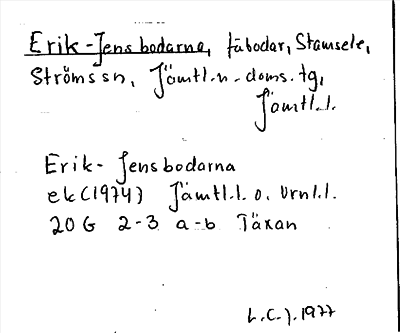 Erik-Jensbodarna, fäbodar, Stamsele,
Ströms sn, Jämtl.n. doms.tg,
Jämtl.l.
Erik-Jensbodarna
ek(1974) Jämtl.l. o. Vrnl.l.
20 G 2-3 a-b Täxan
L.C.J. 1977